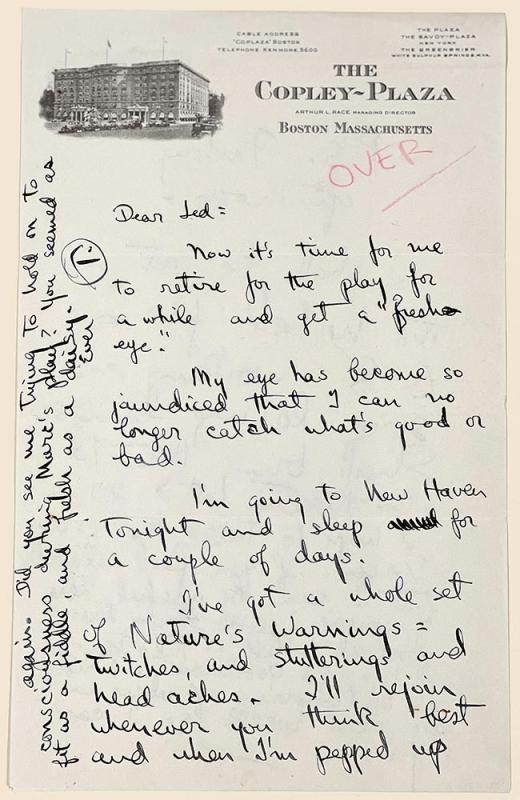 CABLE ADDRESS
"COPLAZA" BOSTON
TELEPHONE KENMORE, 5600
THE PLAZA
THE SAVOY-PLAZA
NEW YORK
THE GREENBRIER
WHITE SULPHUR SPRINGS, W.VA.
THE
COPLEY-PLAZA
ARTHUR L. RACE MANAGING DIRECTOR
BOSTON MASSACHUSETTS
OVER
Dear Jed =
Now it's time for me
to retire for the play for
a while and get a "fresh
eye."
My eye has become so
jaundiced that I can no
longer catch what's good or
bad.
I'm going to New Haven
Tonight and sleep for
a couple of days.
I've got a whole set
of Nature's Warnings =
Twitches, and stutterings and
head aches. I'll rejoin
whenever you think best
and when I'm pepped up
again. Did you see me trying to hold on to
consciousness during Marc's play? You seemed as
fit as a fiddle and fresh as a daisy.
Ever
T.